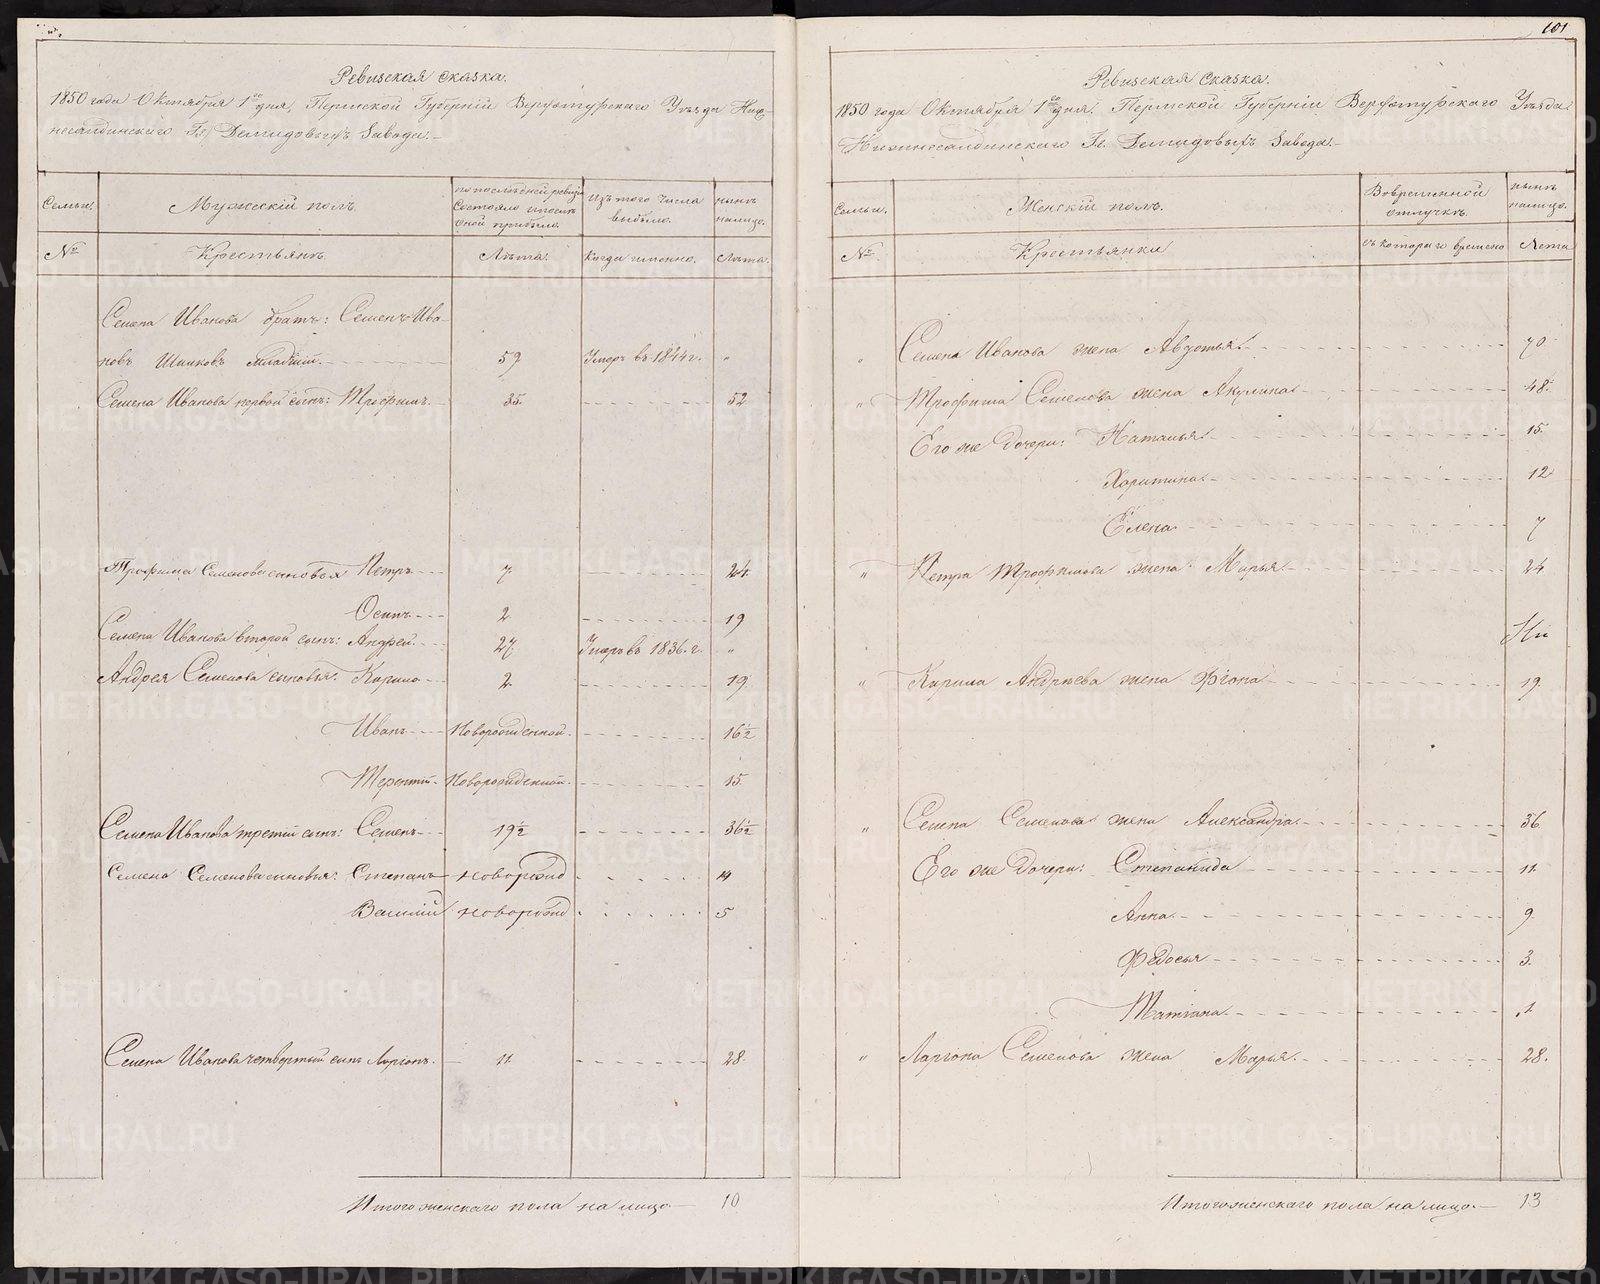 Ревизская сказка.
1850 года Октября 1го дня, Пермской Губернiи Верхотурскаго Уѣзда Ниж-
несалдинскаго Гг. Демидовыхъ Завода.-
Семьи. Мужескiй полъ. По послѣдней ревизiи состояло и послѣ оной прибыло. Изъ того числа выбыло. Нынѣ на лицо.
№ Крестьянъ. Лѣта. Когда именно. Лѣта.
Семена Иванова братъ: Семенъ Ива-
новъ младшiй. 59 Умеръ въ 1844 г. "
Семена Иванова первой сынъ: Трофимъ. 35. 52
Трофима Семенова сыновья Петръ 7 24.
Осипъ 2 19
Семена Иванова второй сынъ: Андрей. 27. Умеръ въ 1836. г. "
Андрея Семенова сыновья. Кирило 2. 19
Иванъ Новорожденной. 16½
Терентiй. Новорожденной. 15.
Семена Иванова третiй сынъ: Семенъ 19½ 36½
Семена Семенова сыновья: Степанъ новорожд 14
Василiй новорожд 5
Семена Иванова четвертый сынъ Ларiонъ. 11. 28.
Итого женскаго пола на лицо 10
101
Ревизская Сказка.
1850 года Октября 1го дня. Пермской Губернiи Верхотурскаго Уѣзда
Нижнесалдинскаго Гг. Демидовыхъ Завода.-
Семьи. Женскiй полъ. Во временной отлучкѣ. Нынѣ на лицо.
№ Крестьянки Съ котораго времено Лета
" Семена Иванова жена Авдотья. 70.
" Трофима Семенова жена Акулина 48.
Его же дочери: Наталья. 15.
Харитина. 12
Елена 7
" Петра Трофимова жена Марья. 24
" Кирила Андреева жена Фiона 19.
" Семена Семенова жена Александра. 36.
Его же дочери: Степанида 11.
Анна. 9.
Федосья 3.
Татiана. 1
" Ларiона Семенова жена Марья. 28.
Итого женскаго пола на лицо. 13
METRIKI.GASO-URAL.RU